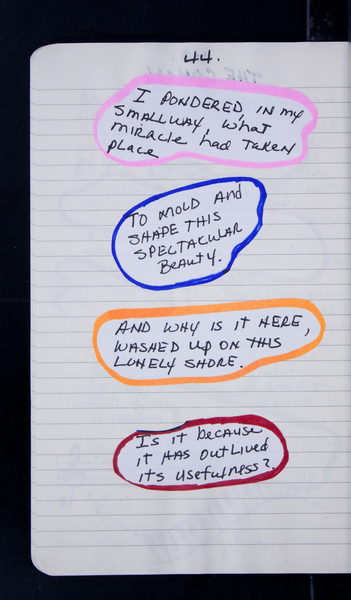 44.
I PONDERED, IN my
SMALL WAY, WHAT
MIRACLE HAD TAKEN
PLACE
TO MOLD AND
SHAPE THIS
SPECTACULAR
BEAUTY.
AND WHY IS IT HERE,
WASHED UP ON THIS
LONELY SHORE.
Is it because
it HAS OUTLIVED
its usefulness?